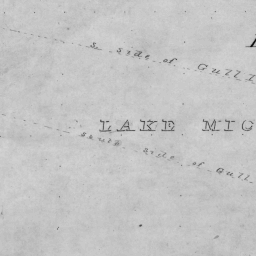 S. side of Gull I
LAKE MIC
South side of Gull